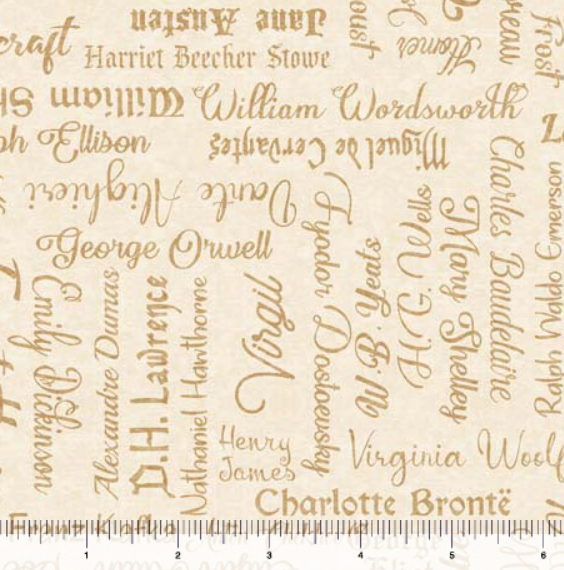 Jane Austen
oust
Homer
eau
Frost
craft
Harriet Beecher Stowe
William Sh
William Wordsworth
ph Ellison
Miguel de Cervantes
Dante Alighieri
George Orwell
Fyodor Dostoevsky
W. B. Yeats
H. G. Wells
Mary Shelley
Charles Baudelaire
Ralph Waldo Emerson
Emily Dickinson
Alexandre Dumas
D.H. Lawrence
Nathaniel Hawthorne
Virgil
Henry
James
Virginia Woolf
Charlotte Brontë
Franz Kafka
1 2 3 4 5 6